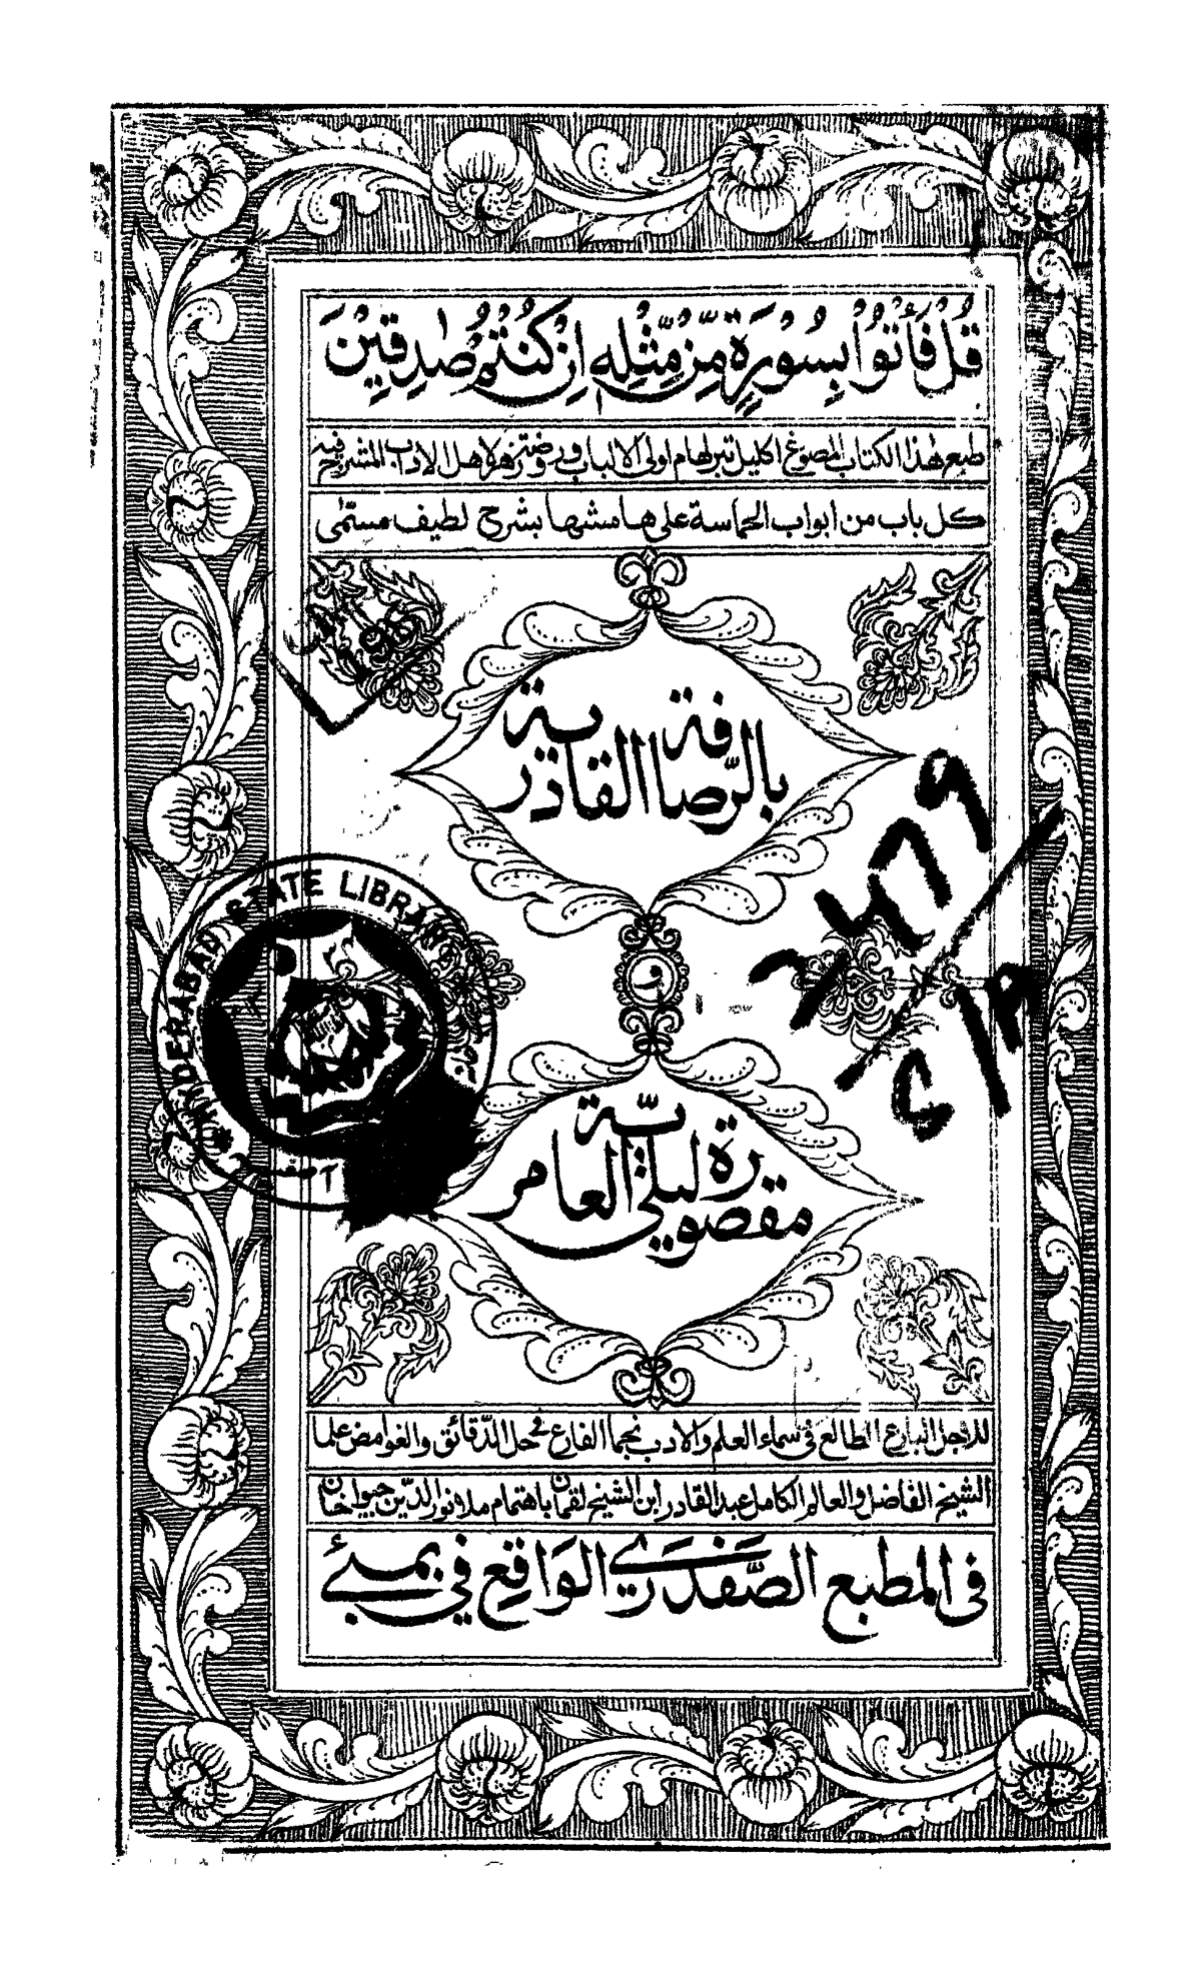 قُلْ فَأْتُوْا بِسُوْرَةٍ مِّنْ مِّثْلِهٖ اِنْ كُنْتُمْ صٰدِقِيْنَ
طبع هذا الكتاب المصوغ اكليل تبر لهام اولى الالباب وروضة زهر لاهل الاداب المشرح فيه
كل باب من ابواب الحماسة على هامشها بشرح لطيف مسمى
بالرّصافة القادرية
و
مقصورة ليلى العامريّة
للاجل البارع الطالع فى سماء العلم والادب نجما الفارع فى حل الدقائق والغوامض علما
الشيخ الفاضل والعالم الكامل عبد القادر ابن الشيخ لقمان باهتمام ملا نور الدّين جيوا خان
فى المطبع الصَّفْدَرِي الوَاقِع في بمبئ
HYDERABAD STATE LIBRARY
٢٤٦٩